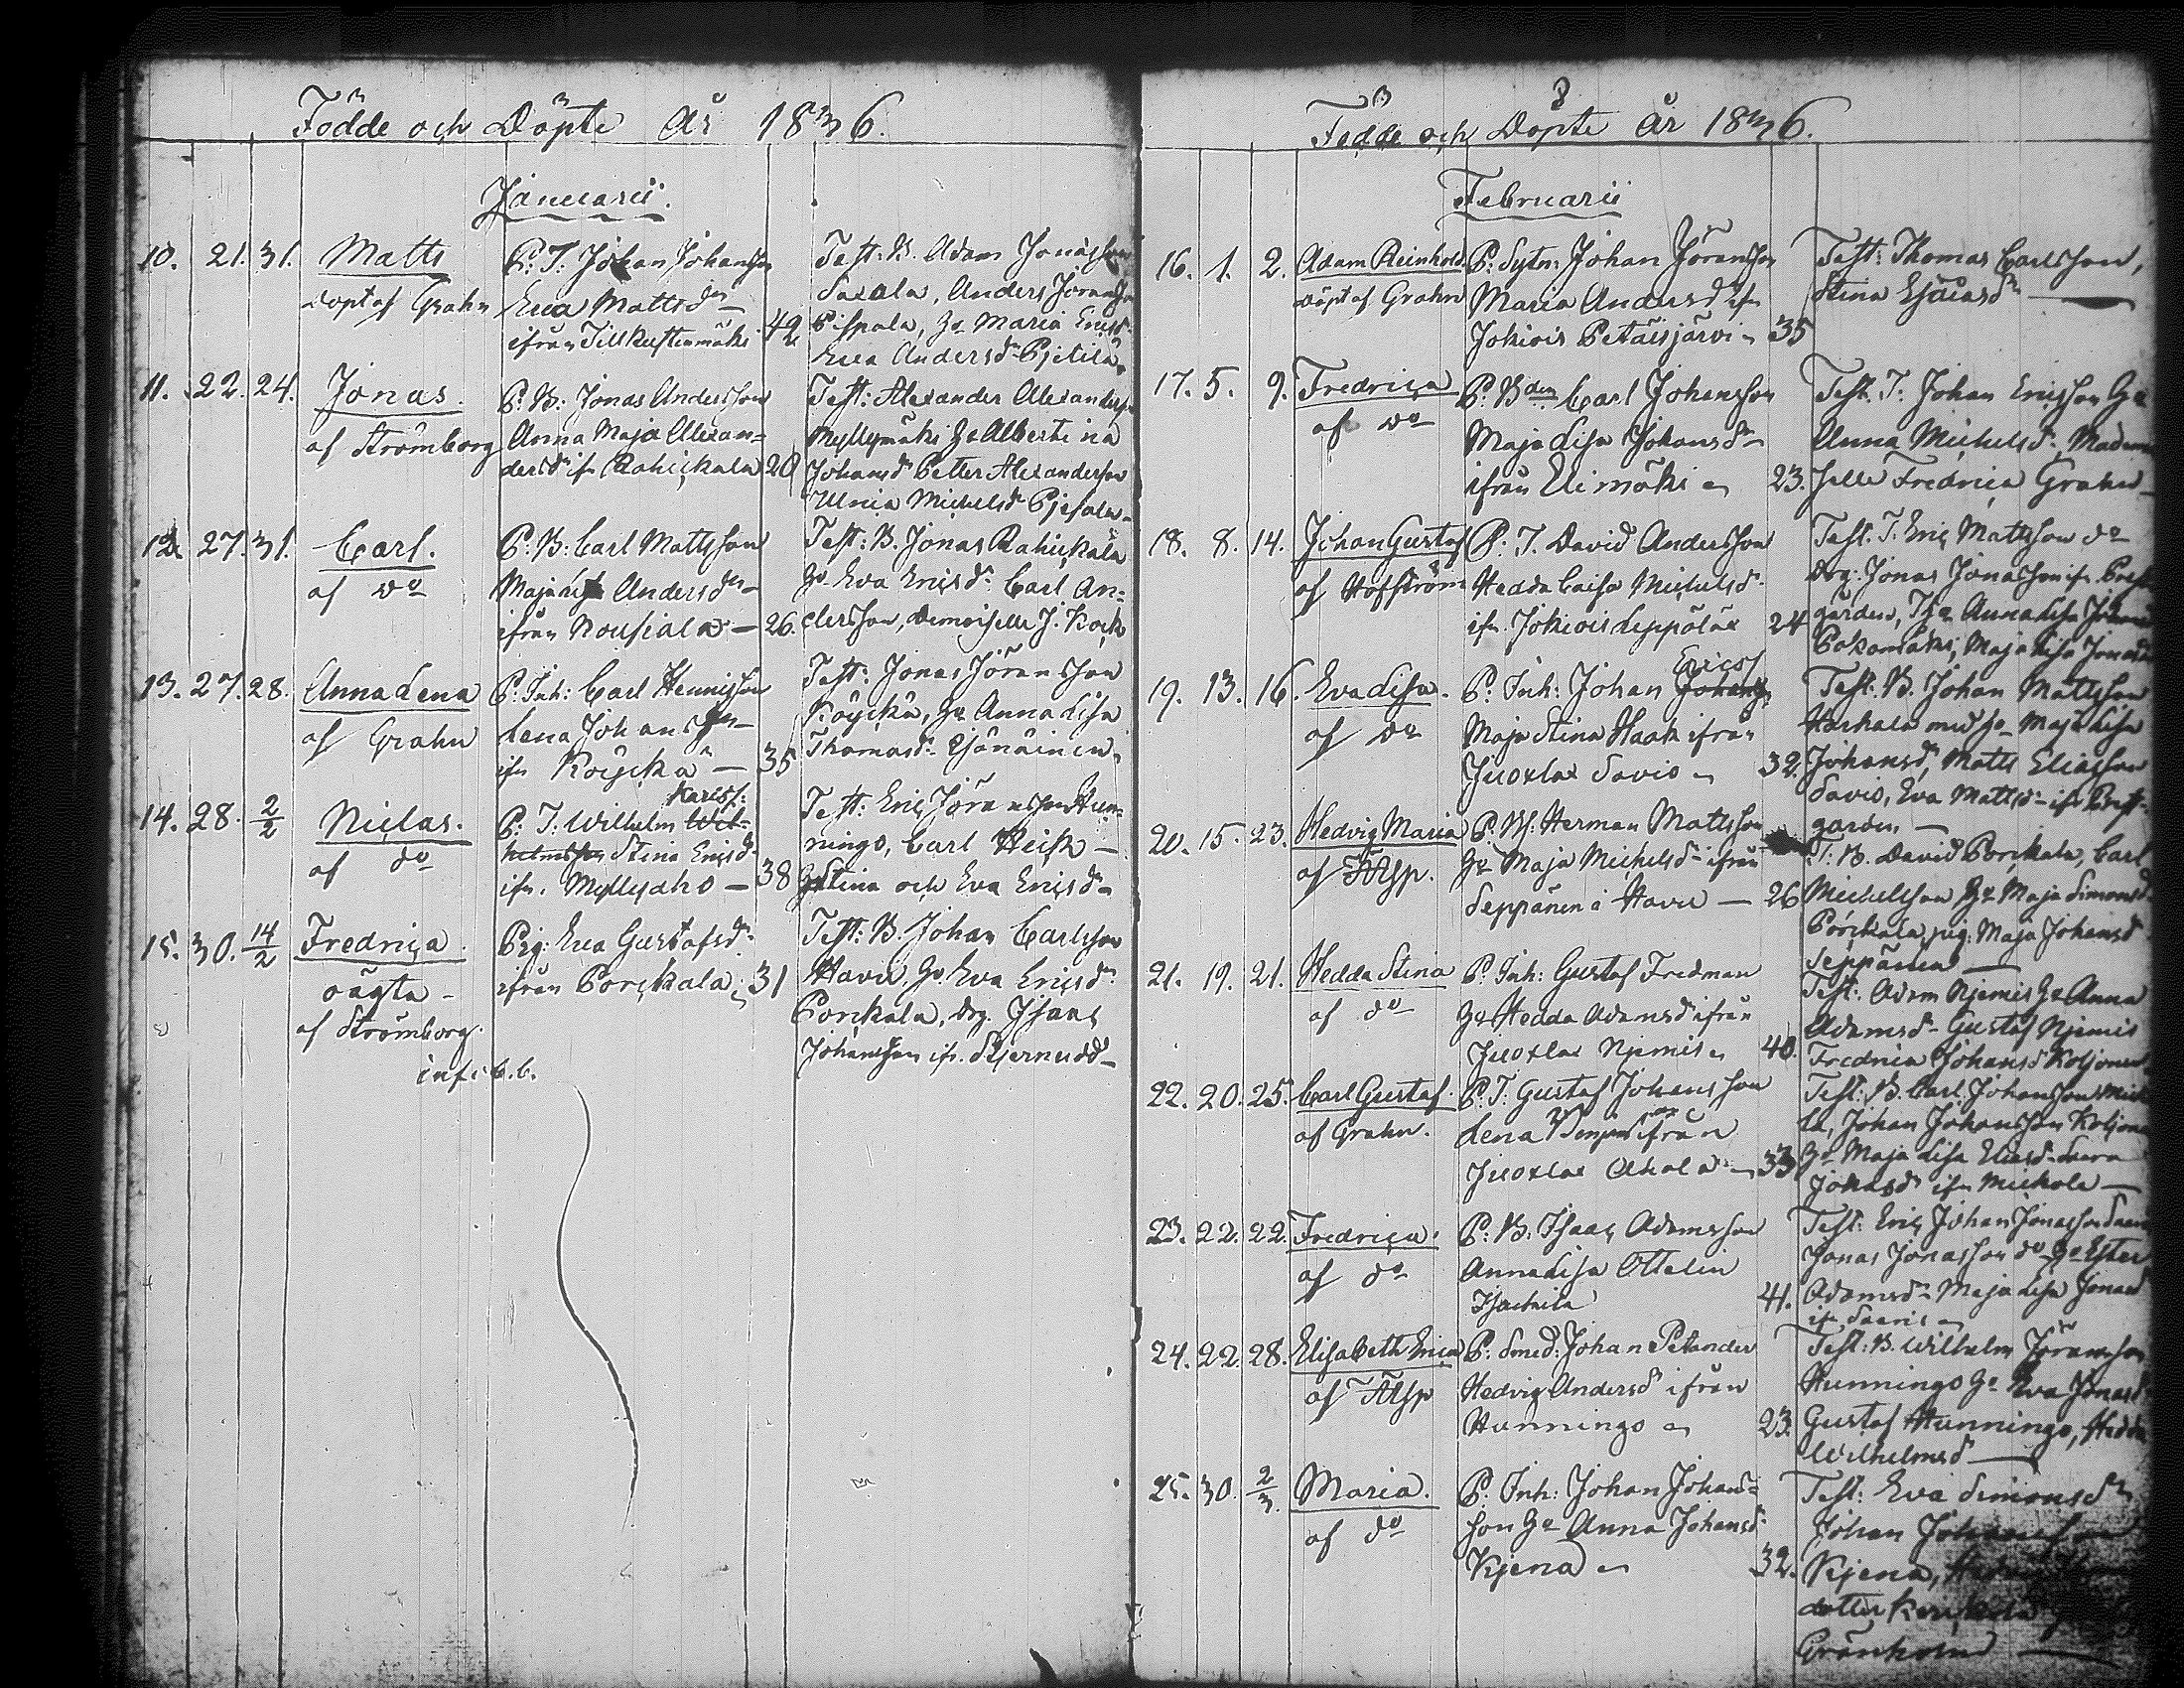 Födde och Döpte År 1836.
Januarii.
10. 21. 31. Matts
döpt af Grahn
P: T: Johan Johansson
Eva Mattsdr
ifrån Tillkustenmäki 42
Test: B. Adam Jonasson
Saxala, Anders Göransson
Pispala, Ga Maria Ericsd.
Eva Andersdr
11. 22. 24. Jonas.
af Strömborg
P: B: Jonas Andersson
Anna Maja Alexan=
dersdr ifr Rahickala 20
Test: Alexander Alexanders.
Myllymäki Ga Albertina
Johansd Petter Alexandersson
Ulrica Michelsdr
12. 27. 31. Carl.
af do
P: B: Carl Mattsson
Maja Lisa Andersdr
ifrån Nousiala — 26.
Test: B. Jonas Rahickala
Ga Eva Ericsdr Carl An=
dersson, Demoiselle J. Kock
13. 27. 28. Anna Lena
af Grahn
P. Inh: Carl Hennisson
Lena Johansdr
ifr Köyckä — 35
Test: Jonas Göransson
Köyckä, Ga Anna Lisa
Thomasdr
14. 28. 2/2 Niclas.
af do
Karlss:
P: T: Wilhelm Wil=
helmsson Stina Ericsd.
ifr. Myllyaho — 38
Test: Eric Göransson Hun=
ningo, Carl Heick —
Ga Stina och Eva Ericsdr
15. 30. 14/2 Fredrica.
oägta —
af Strömborg.
inf: b.b.
Pig: Eva Gustafsdr
ifrån Porckala. 31
Test: B. Johan Carlsson
Havu, Ga Eva Ericsdr
Porckala, Drg. Isaac
Johansson ifr. Stjernudd
Födde och Döpte År 1836.
Februarii
16. 1. 2. Adam Reinhold.
döpt af Grahn
P: Sytn: Johan Göransson
Maria Andersdr ifr
Jokiois Petäisjärvi 35
Test: Thomas Carlsson,
Stina Esaiasdr —
17. 5. 9. Fredrica
af do
P: Bden Carl Johansson
Maja Lisa Johansdr
ifrån Elimäki 23.
Test. T. Johan Ericsson Ga
Anna Michelsdr. Madame
Fredrica Grahn
18. 8. 14. Johan Gustaf
af Hoffström
P. T. David Andersson
Hedda Caisa Michelsdr
ifr. Jokiois Leppälax 24
Test. T. Eric Mattsson do
Drg: Jonas Jonasson ifr. Prest
gården, Anna Lisa
Maja Lisa
19. 13. 16. Eva Lisa.
af do
Ericss
P. Inh: Johan Johanss
Maja Stina Haak ifrån
Juoxlax Savio 32.
Test: B. Johan Mattsson
Harkala med Ga Maja Lisa
Johansdr, Matts Eliasson
Savio, Eva Mattsdr ifr Prest=
gården —
20. 15. 23. Hedvig Maria
af
P. B: Herman Mattsson
Ga Maja Michelsdr ifrån
Seppänen å Havu — 26
T: B. David Porckala, Carl
Michelsson Ga Maja Simonsd
Porckala, pig: Maja Johansd
Seppänen —
21. 19. 21. Hedda Stina
af do
P. Inh: Gustaf Fredman
Ga Hedda Adamsd ifrån
Juoxlax Njemis 40.
Test: Adam Njemis Ga Anna
Adamsdr Gustaf Njemis
Fredrica Johansd Koljonen
22. 20. 25. Carl Gustaf.
af Grahn.
P: T: Gustaf Johansson
Lena ifrån
Juoxlax Ahola 33
Test: B. Carl Johansson
Johan Johansson
Ga Maja Lisa Eliasdr
ifr Mickola —
23. 22. 22. Fredrica.
af do
P: B. Isaac Adamsson
Anna Lisa Ottelin
41.
Test: Eric Johan Jonasson
Jonas Jonasson do Ga Ester
Adamsdr Maja Lisa Jonasd
24. 22. 28. Elisabeth Erica
af
P: Smed: Johan Petander
Hedvig Andersd ifrån
Hunningo 23.
Test: B. Wilhelm Göransson
Hunningo Ga Eva Jonasdr
Gustaf Hunningo, Hedda
Wilhelmsd —
25. 30. 2/3. Maria.
af do
P. Inh: Johan Johans=
son Ga Anna Johansd.
Kjena 32.
Test: Eva Simonsdr
Johan Johansson
Kjena,
dotter
Grönholm —